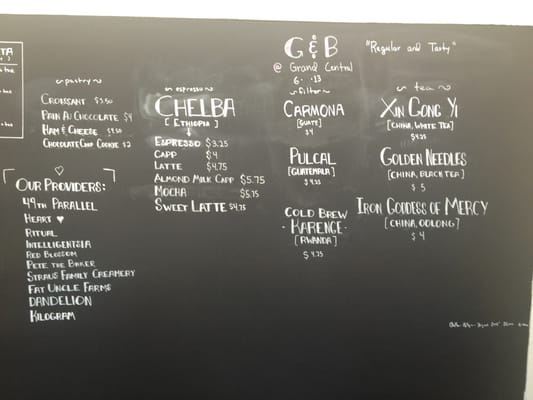 G & B
"Regular and Tasty"
@ Grand Central
~ pastry ~
CROISSANT $3.50
PAIN AU CHOCOLATE $4
HAM & CHEESE $4.50
CHOCOLATE CHIP COOKIE $2
OUR PROVIDERS:
49TH PARALLEL
HEART ♥
RITUAL
INTELLIGENTSIA
RED BLOSSOM
PETE THE BAKER
STRAUS FAMILY CREAMERY
FAT UNCLE FARMS
DANDELION
KILOGRAM
~ espresso ~
CHELBA
[ETHIOPIA]
ESPRESSO $3.25
CAPP $4
LATTE $4.75
ALMOND MILK CAPP $5.75
MOCHA $5.75
SWEET LATTE $4.75
~ filter ~
CARMONA
[GUATE]
$4
PULCAL
[GUATEMALA]
$4.25
COLD BREW
· KARENGE ·
[RWANDA]
$4.75
~ tea ~
XIN GONG YI
[CHINA, WHITE TEA]
$4.25
GOLDEN NEEDLES
[CHINA, BLACK TEA]
$5
IRON GODDESS OF MERCY
[CHINA, OOLONG]
$4